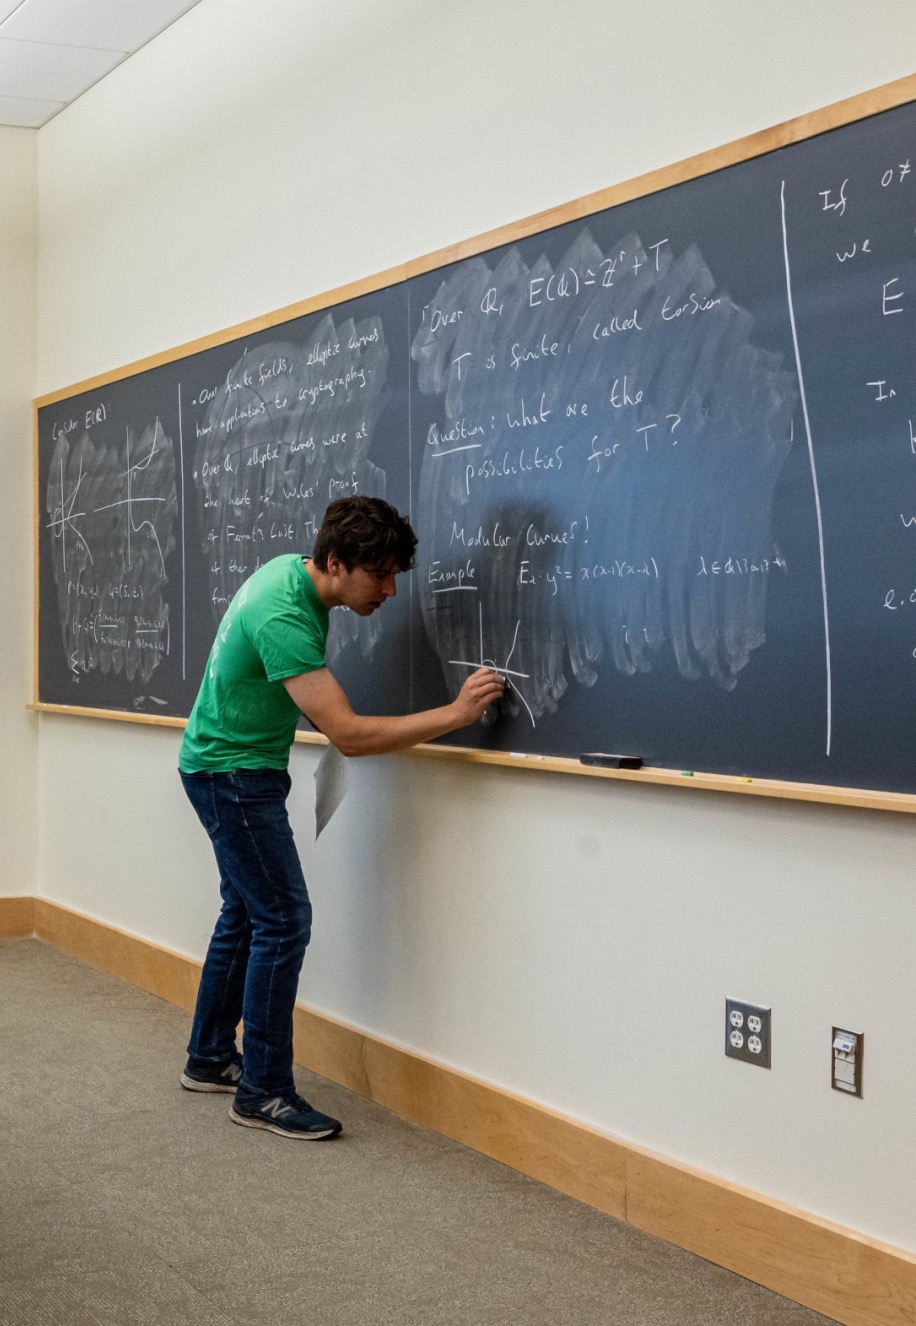 Consider E(R):
P = (x₁, y₁) Q = (
• Over finite fields, elliptic curves
have applications to cryptography.
• Over Q, elliptic curves were at
the heart of Wiles' proof
of Fermat's Last Th
Over Q, E(Q) ≅ Zʳ + T
T is finite, called torsion
Question: What are the
possibilities for T?
Modular Curves!
Example E₂: y² = x(x-1)(x-λ) λ ∈ Q\{0,1}
If 0≠
we
E
In
w
e.
N